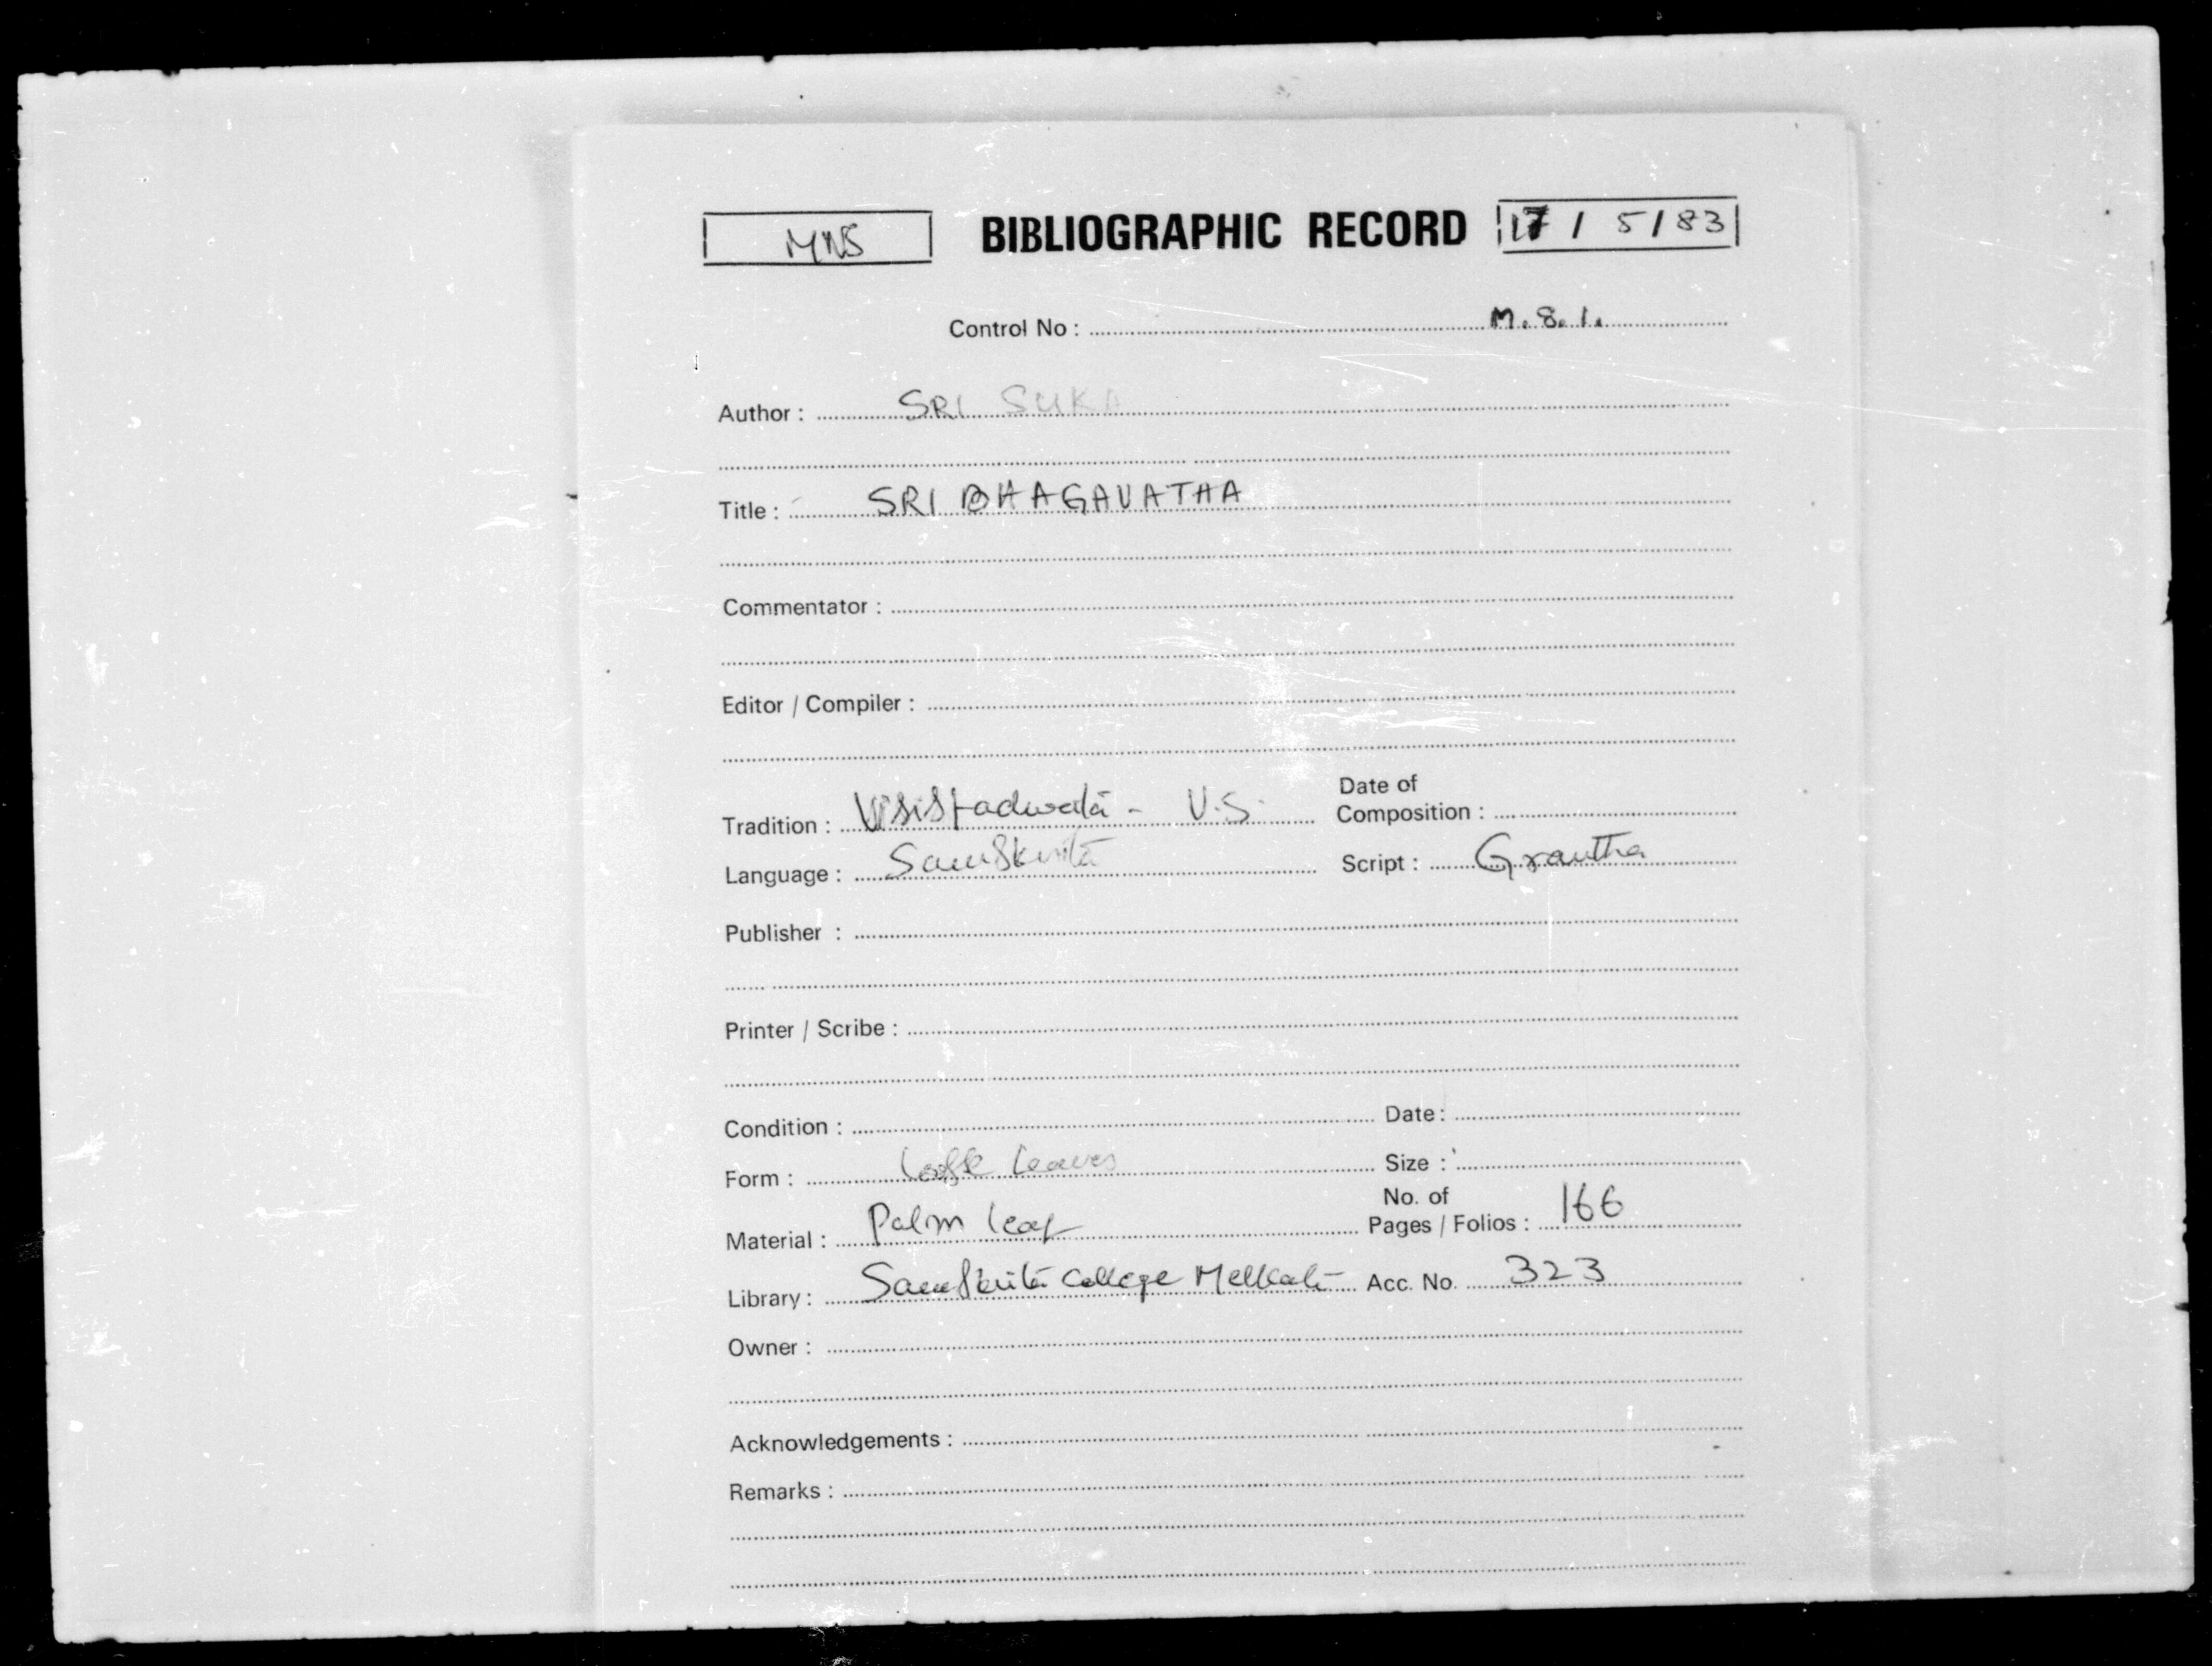 MNS BIBLIOGRAPHIC RECORD 17 / 5 / 83
Control No : M. 8. 1.
Author : SRI SUKA
Title : SRI BHAGAVATHA
Commentator :
Editor / Compiler :
Tradition : Visistadwata - V.S. Date of Composition :
Language : Samskrita Script : Grantha
Publisher :
Printer / Scribe :
Condition : Date :
Form : Leaves Size :
Material : Palm leaf No. of Pages / Folios : 166
Library : Samskrita College Melkote Acc. No. 323
Owner :
Acknowledgements :
Remarks :